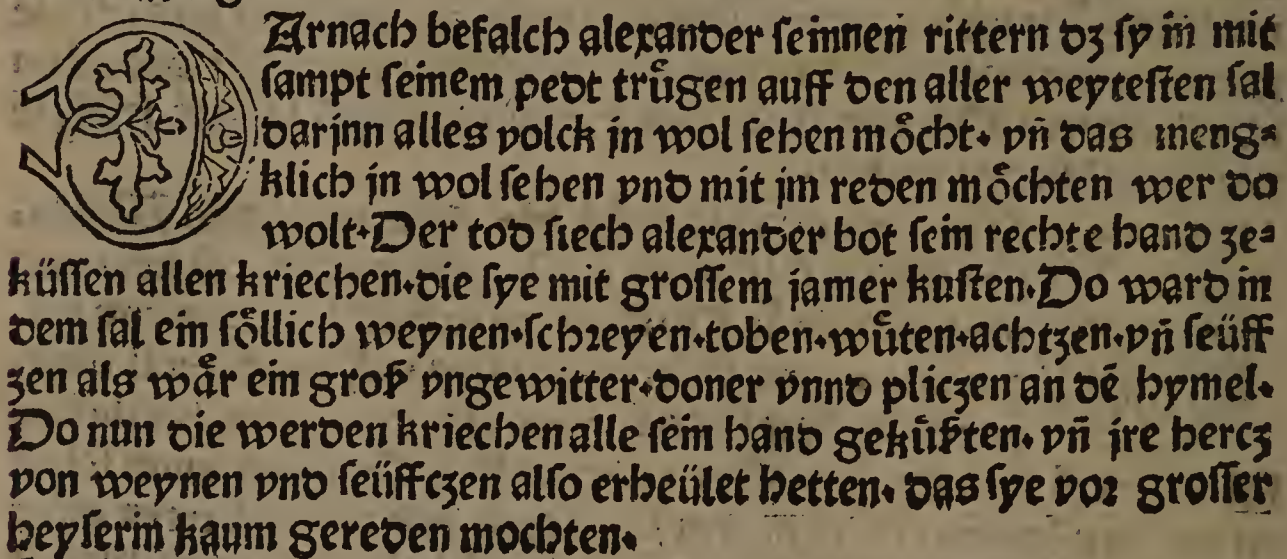 DArnach befalch alexander seinnen rittern dz sy in mit
sampt seinem pedt trůgen auff den aller weytesten sal
darjnn alles volck jn wol sehen mo̊cht. vñ das meng⸗
klich jn wol sehen vnd mit jm reden mo̊chten wer do
wolt. Der tod siech alexander bot sein rechte hand ze⸗
küssen allen kriechen. die sye mit grossem jamer kusten. Do ward in
dem sal ein so̊llich weynen. schꝛeyen. toben. wůten. achtzen. vñ seüff
zen als wår ein groß vngewitter. doner vnnd pliczen an dē hymel.
Do nun die werden kriechen alle sein hand gekůßten. vñ jre hercz
von weynen vnd seüffczen also erheület hetten. das sye voꝛ grosser
heyserin kaum gereden mochten.